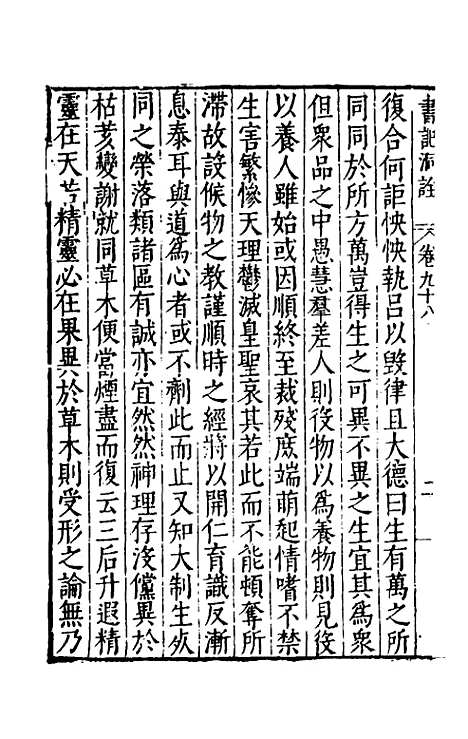 書記洞詮　卷九十八　二
復合何詎怏怏執呂以毀律且大德曰生有萬之所
同同於所方萬豈得生之可異不異之生宜其爲衆
但衆品之中愚慧羣差人則役物以爲養物則見役
以養人雖始或因順終至裁殘庶端萌起情嗜不禁
生害繁慘天理鬱滅皇聖哀其若此而不能頓奪所
滯故設候物之教謹順時之經將以開仁育識反漸
息泰耳與道爲心者或不劑此而止又知大制生死
同之榮落類諸區有誠亦宜然然神理存沒儻異於
枯荄變謝就同草木便當煙盡而復云三后升遐精
靈在天若精靈必在果異於草木則受形之論無乃